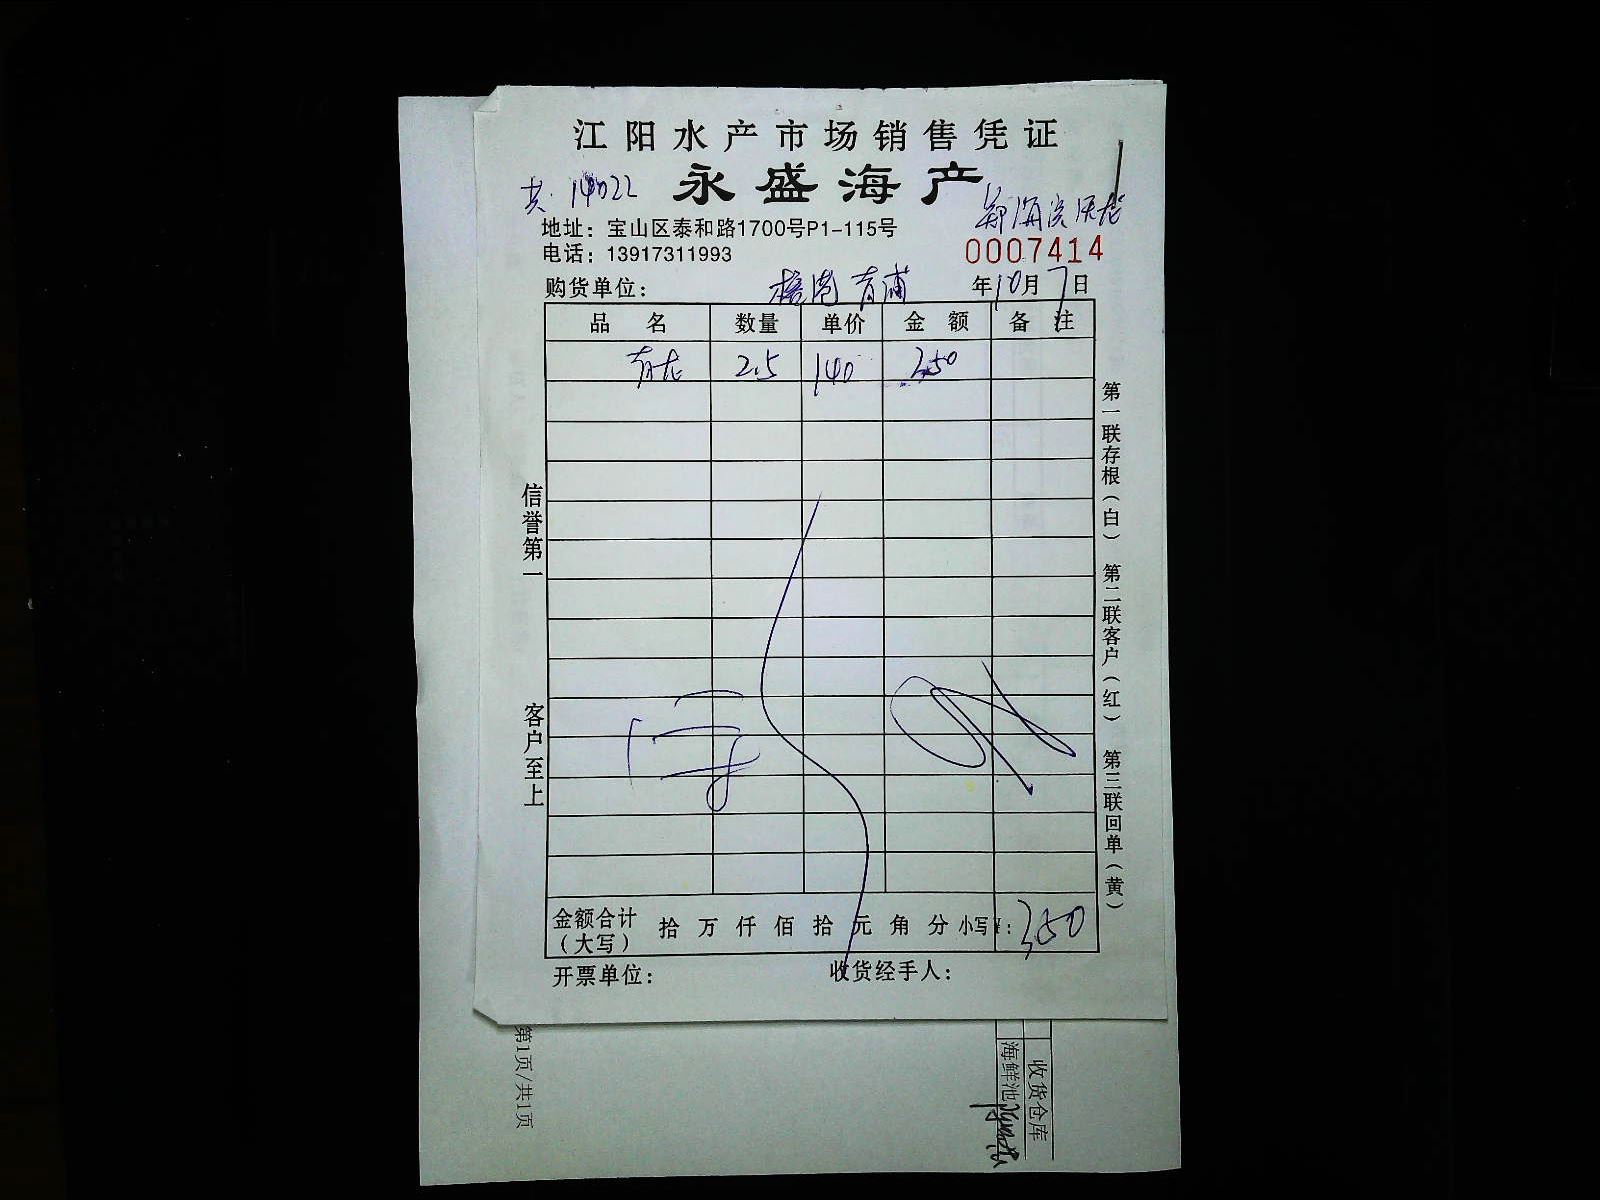 江阳水产市场销售凭证
永盛海产
共
地址：宝山区泰和路1700号P1-115号
电话：13917311993
0007414
购货单位： 青浦 年10月7日
品名 数量 单价 金额 备注
青龙 2.5 140 350
信誉第一
客户至上
第一联存根（白） 第二联客户（红） 第三联回单（黄）
金额合计（大写） 拾 万 仟 佰 拾 元 角 分 小写¥：350
开票单位： 收货经手人：
第1页/共1页
收货仓库
海鲜池